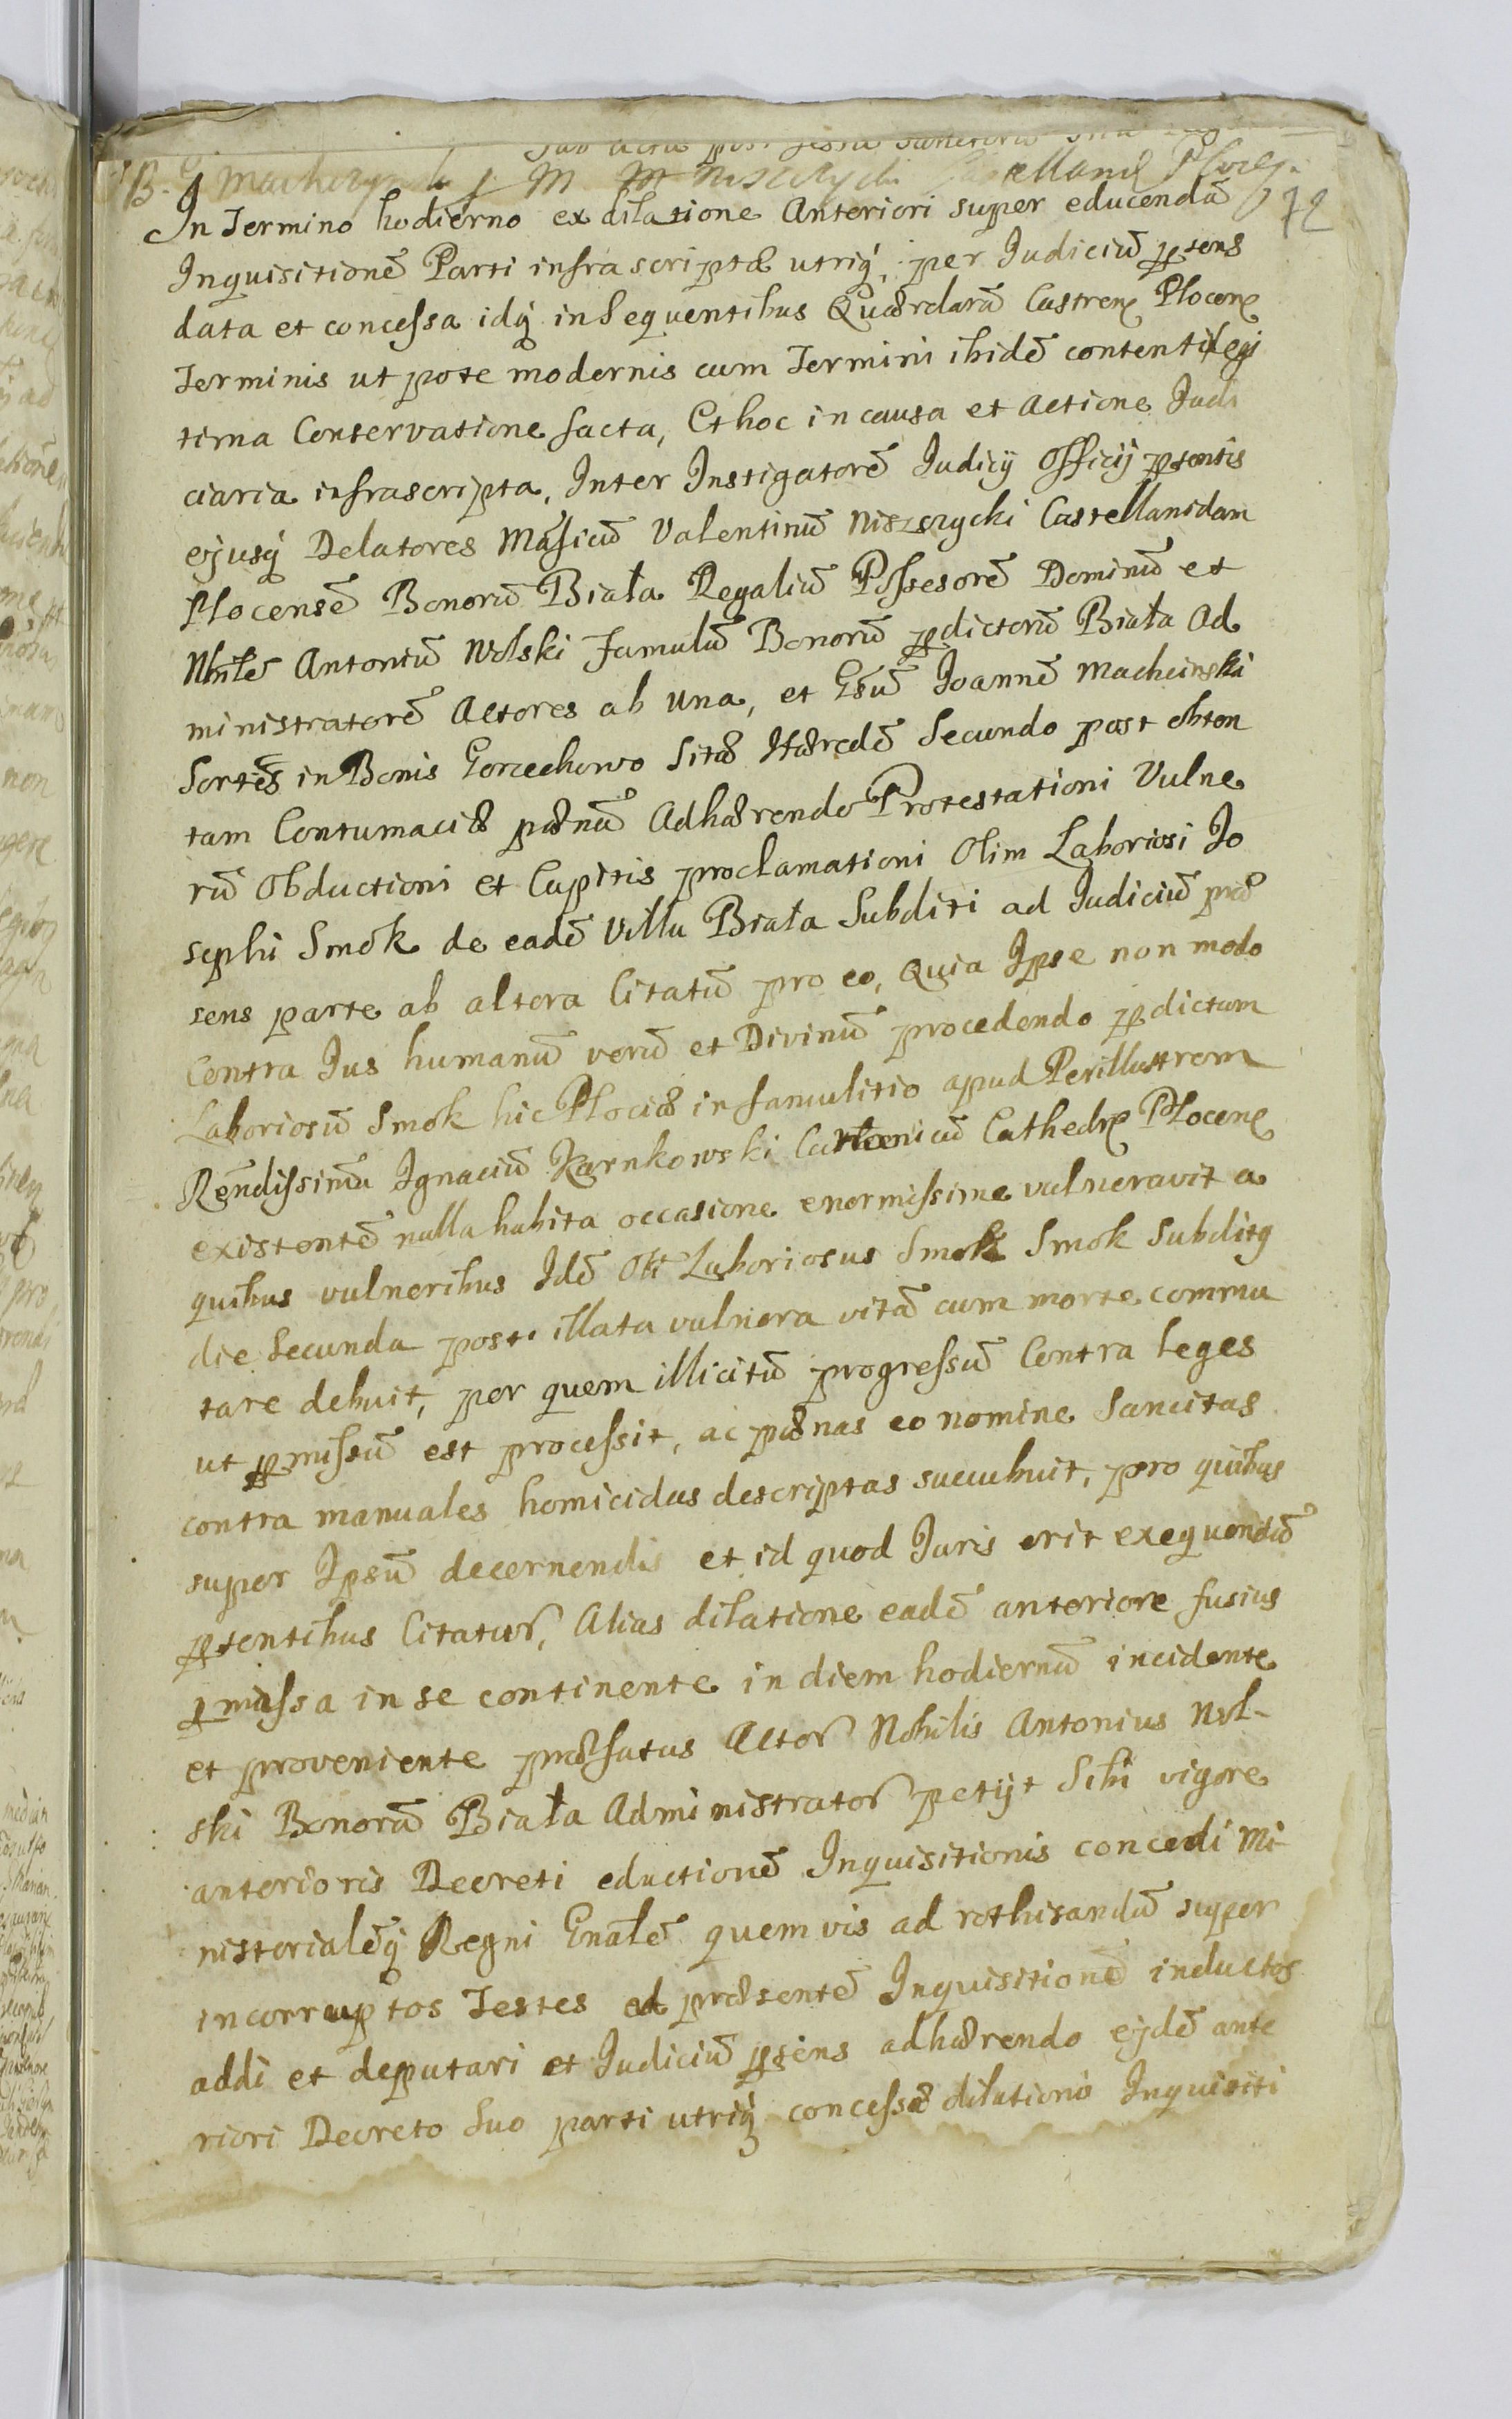 Machczyński M Niszczycki Castellani Plocen.
72
In Termino hodierno ex dilatione Anteriori super educendā
Inquisitionē Parti infrascriptæ utriq, per Iudiciū pͬtens
data et concessa idq insequentibus Quærelarū Castren Plocen
Terminis ut pote modernis cum Termini ibidē contenti legi
tima Conservatione facta, Et hoc in causa et Actione Iudi
ciaria infrascripta, Inter Instigatorē Iudicij Officij pͬtentis
ejusq Delatores Māficū Valentinū Niszczycki Castellanidam
Plocensē Bonorū Biała Regaliū Possesorē Dominū et
Nbilē Antoniū Wolski Famulū Bonorū pͬdictorū Biała Ad
ministratorē Actores ab una, et Gsū Joannē Machcinski
Sortēs in Bonis Gorzechowo Sitæ Hæredē Secundo post obten
tam Contumaciæ pænā Adhærendo Protestationi Vulne
rū Obductioni et Capitis proclamationi Olim Laboriosi Jo
sephi Smok de eadē Villa Biała Subditi ad Iudiciū præ
sens parte ab altera Citatū pro eo, Quia Ipse non modo
Contra Jus humanū verū et Divinū procedendo pͬdictum
Laboriosū Smok hic Plociæ in famulitio apud Perillustrem
Rēndissimū Ignaciū Karnkowski Canonicū Cathedr Plocen
existentē nulla habita occasione enormissime vulneravit a
quibus vulneribus Idē Oli Laboriosus Smok Smok Subditq
die secunda post illata vulnera vitā cum morte commu
tare debuit, per quem illicitū progressū Contra leges
ut pͬmissū est processit, ac pænas eo nomine Sancitas
contra manuales homicidas descriptas succubuit, pro quibus
super Ipsū decernendis et id quod Iuris erit exequendū
pͬtentibus Citatur, Alias dilatione eadē anteriore fusius
pͬmissa in se continente in diem hodiernū incidente
et proveniente præfatus Actor Nobilis Antonius Wol-
ski Bonorū Biała Administrator petijt Sibi vigore
anterioris Decreti eductionē Inquisitionis concedi Mi-
nisterialēq Regni Gnalē quemvis ad rothisandū super
incorruptos Testes ad præsentē Inquisitionē inductos
addi et deputari et Iudiciū pͬsens adhærendo ejdē ante
riori Decreto Suo parti utriq concessæ dilationis Inquisiti